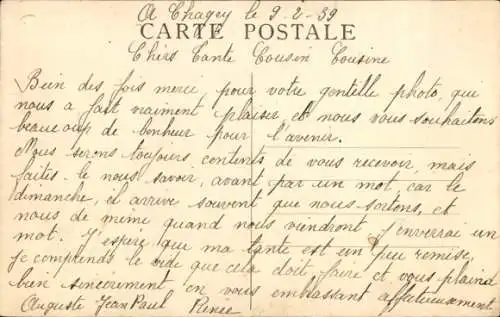 A Chagey le 9-2-39
CARTE POSTALE
Chers Tante Cousin Cousine
Bien des fois merci pour votre gentille photo, qui
nous a fait vraiment plaisir et nous vous souhaitons
beaucoup de bonheur pour l'avenir.
Nous serons toujours contents de vous recevoir, mais
faites le nous savoir, avant par un mot, car le
dimanche, il arrive souvent que nous sortons, et
nous de même quand nous viendront j'enverrai un
mot. J'espère que ma tante est un peu remise,
je comprends le vide que cela doit faire et vous plaind
bien sincèrement en vous embrassant affectueusement
Auguste Jean Paul Renée